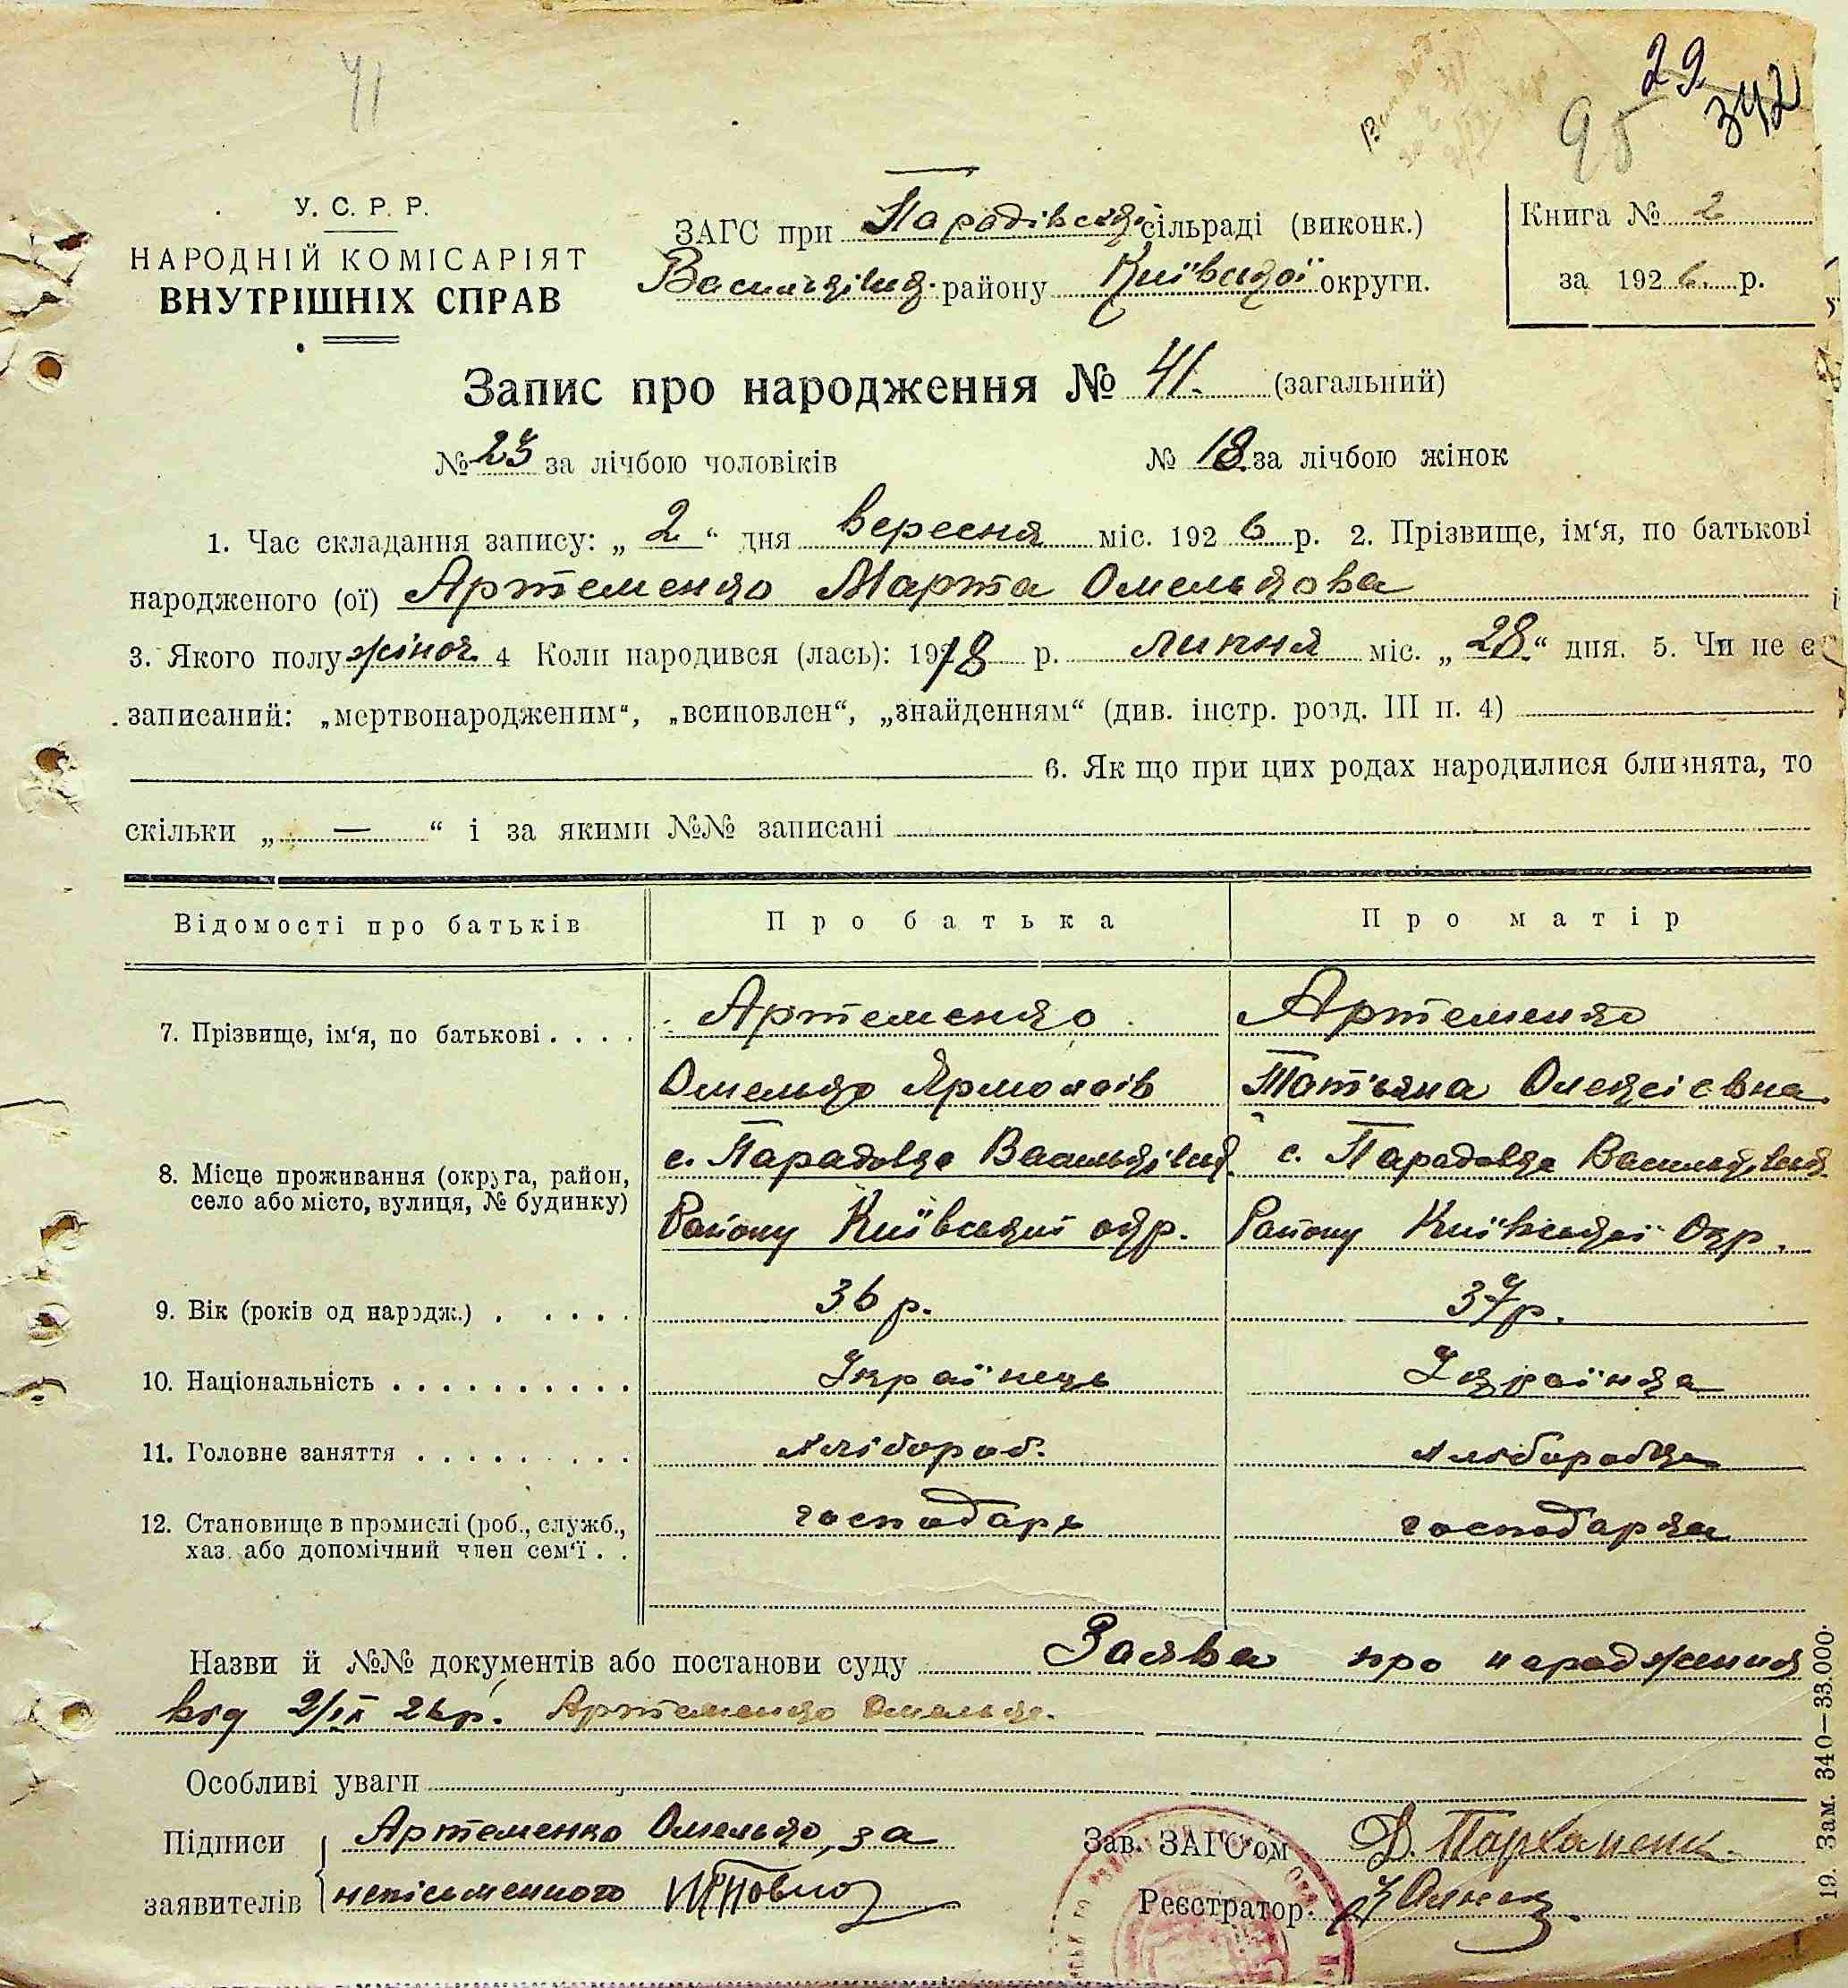 41
29
95
342
У. С. Р. Р.
НАРОДНІЙ КОМІСАРІЯТ
ВНУТРІШНІХ СПРАВ
ЗАГС при Парадівськ. сільраді (виконк.)
Васильківськ. району Київської округи.
Книга № 2
за 1926 р.
Запис про народження № 41. (загальний)
№ 23 за лічбою чоловіків № 18. за лічбою жінок
1. Час складання запису: „ 2 “ дня вересня міс. 1926 р. 2. Прізвище, ім‘я, по батькові
народженого (ої) Артеменко Марта Омелькова
3. Якого полу жіноч. 4 Коли народився (лась): 1918 р. липня міс. „ 28. “ дня. 5. Чи не є
записаний: „мертвонародженим“, „всиновлен“, „знайденням“ (див. інстр. розд. III п. 4)
6. Як що при цих родах народилися близнята, то
скільки „ — “ і за якими №№ записані
Відомості про батьків Про батька Про матір
7. Прізвище, ім‘я, по батькові . . . . Артеменко Артеменко
Омелько Ярмолаів Татьяна Олексієвна
8. Місце проживання (округа, район, с. Парадовка Васильківськ. с. Парадовка Васильківськ.
село або місто, вулиця, № будинку) Району Київської окр. Району Київської Окр.
9. Вік (років од народж.) . . . . . 36 р. 37 р.
10. Національність . . . . . . . . . . Українець Українка
11. Головне заняття . . . . . . . . . хлібороб. хлібородка
12. Становище в промислі (роб., служб., господарь господарка
хаз. або допомічний член сем‘ї . .
Назви й №№ документів або постанови суду Заява про народження
від 2/IX 26 р. Артеменко Омелька.
Особливі уваги
Підписи Артеменко Омелько, за
заявителів неписьменного
Зав. ЗАГС‘ом Д. Пархомен
Реєстратор
19. Зам. 340—33.000.